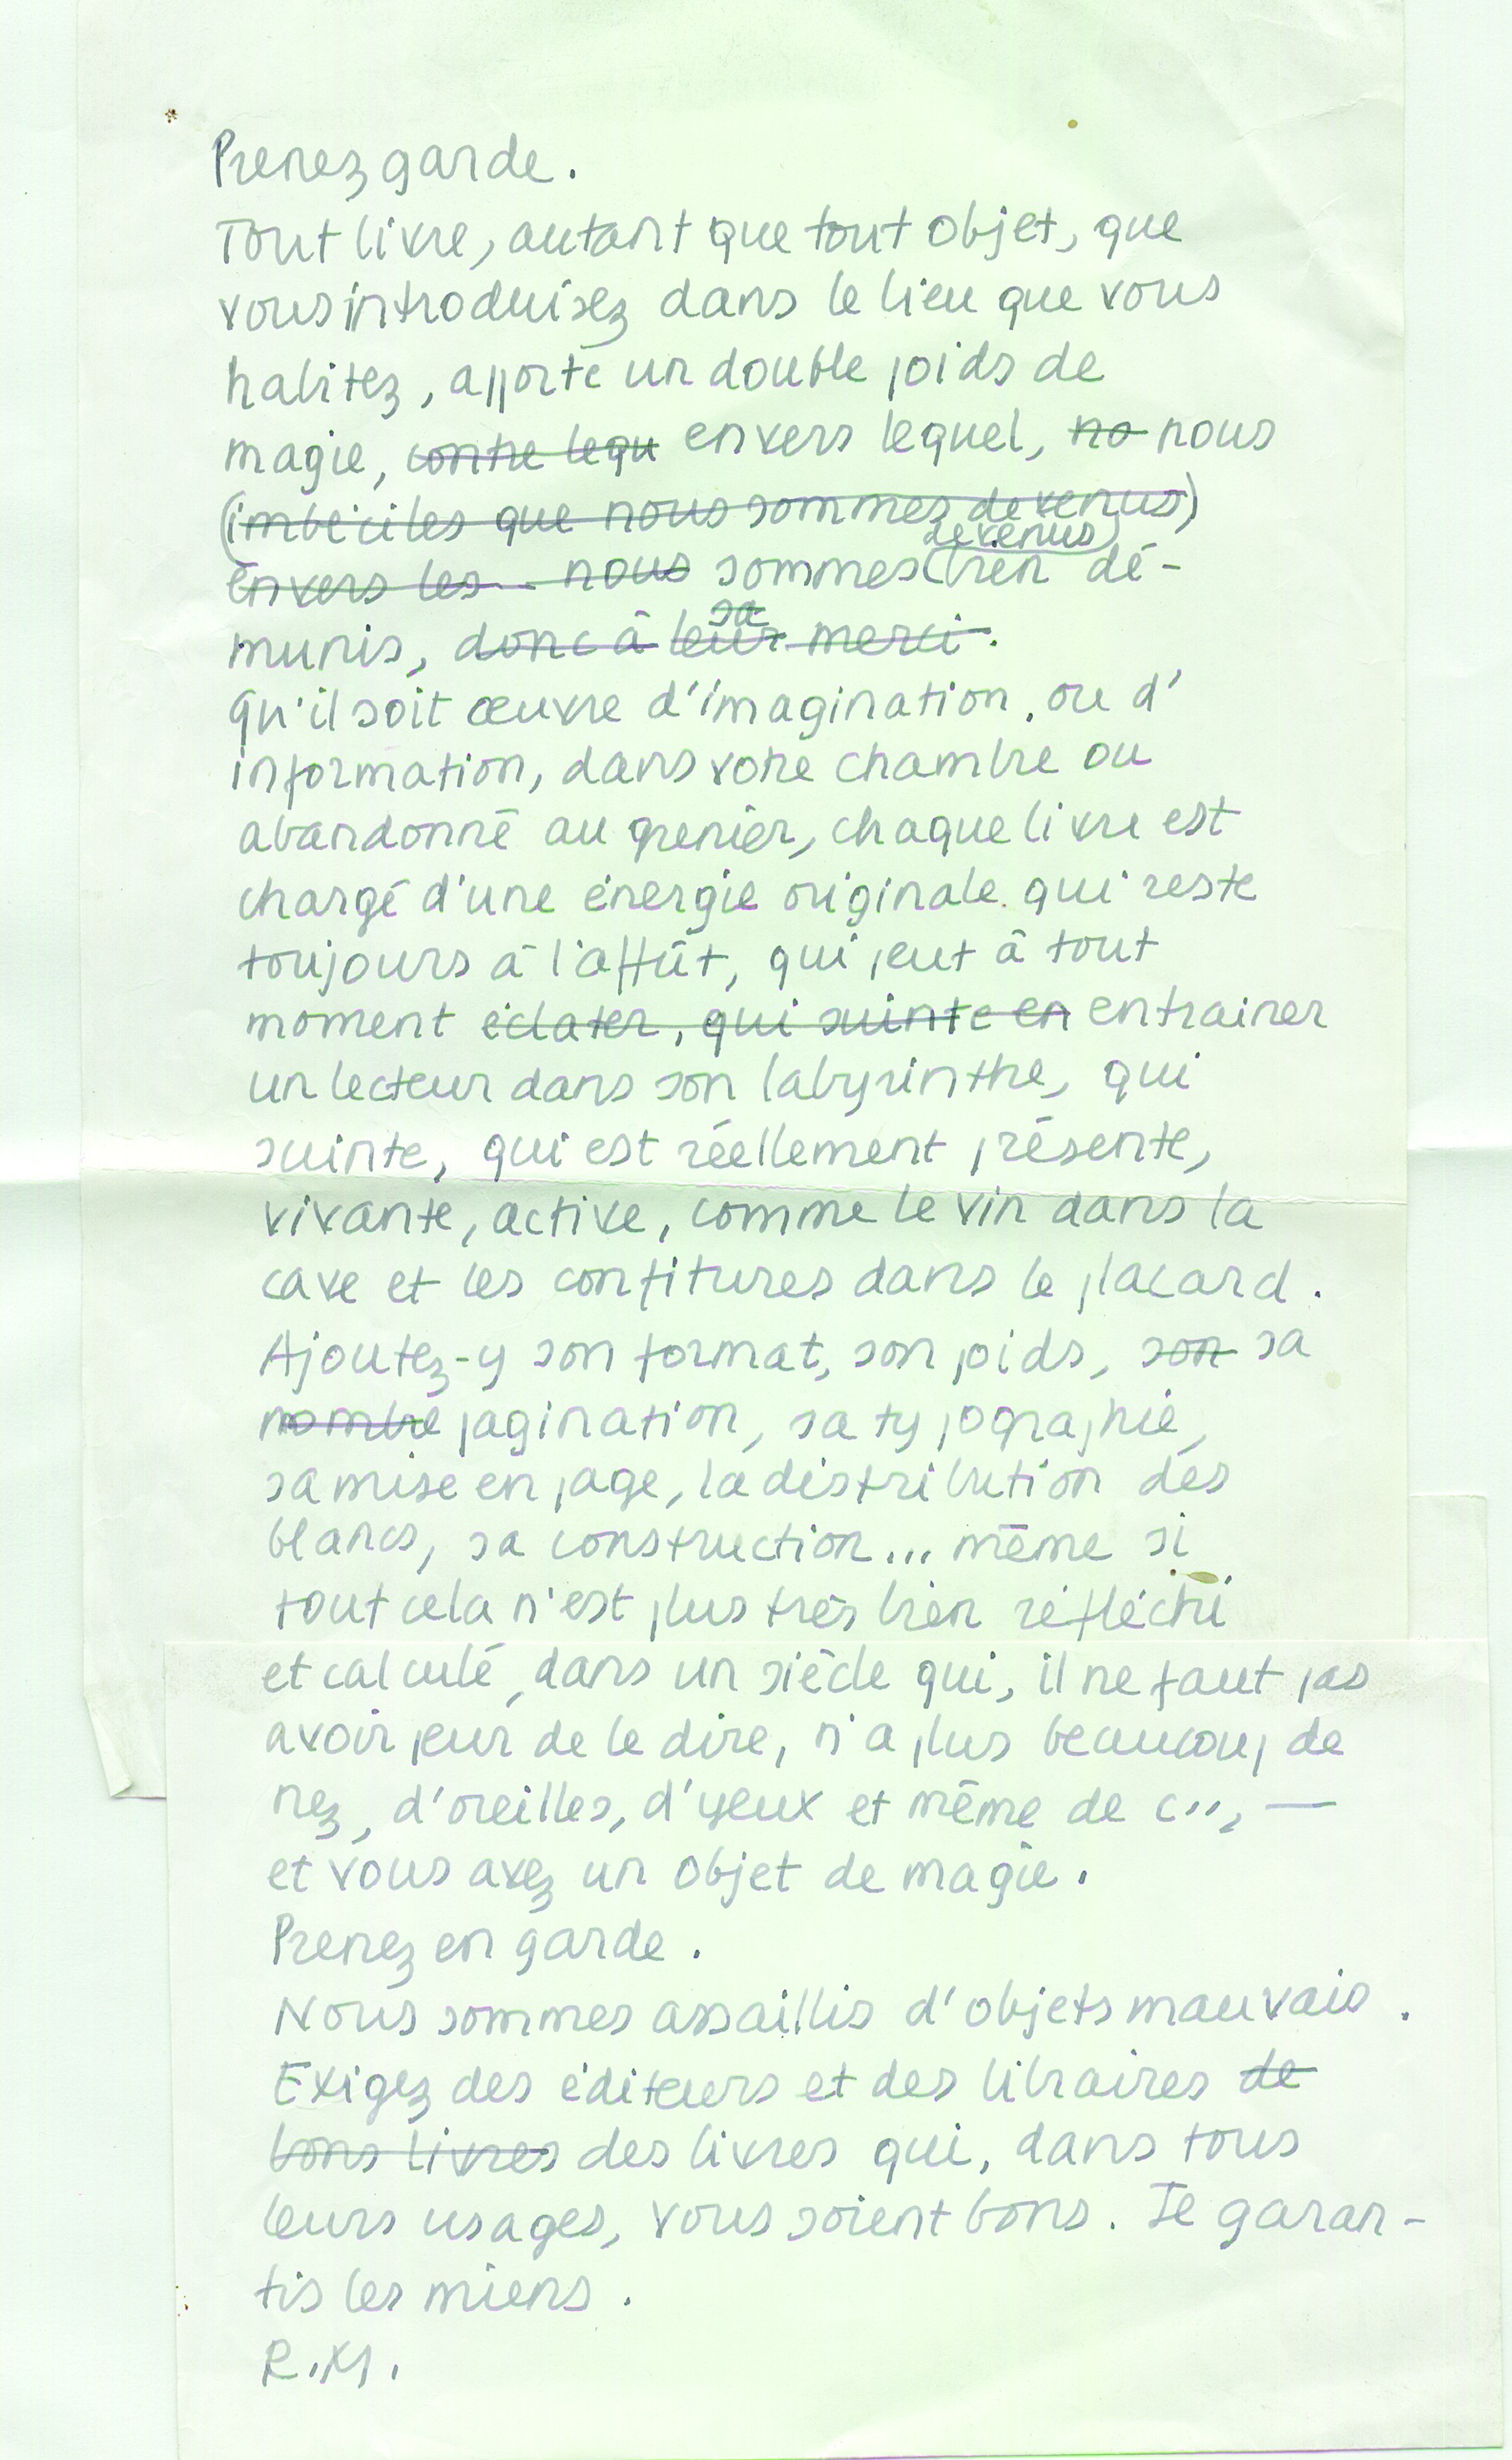 Prenez garde.
Tout livre, autant que tout objet, que
vous introduisez dans le lieu que vous
habitez, apporte un double poids de
magie, contre lequ envers lequel, no nous
(imbéciles que nous sommes devenus)
devenus
envers les nous sommes bien dé-
sa
munis, donc à leur merci.
Qu'il soit œuvre d'imagination, ou d'
information, dans votre chambre ou
abandonné au grenier, chaque livre est
chargé d'une énergie originale qui reste
toujours à l'affût, qui peut à tout
moment éclater, qui suinte en entrainer
un lecteur dans son labyrinthe, qui
suinte, qui est réellement présente,
vivante, active, comme le vin dans la
cave et les confitures dans le placard.
Ajoutez-y son format, son poids, son sa
nombre pagination, sa typographie,
sa mise en page, la distribution des
blancs, sa construction... même si
tout cela n'est plus très bien réfléchi
et calculé, dans un siècle qui, il ne faut pas
avoir peur de le dire, n'a plus beaucoup de
nez, d'oreilles, d'yeux et même de c.., —
et vous avez un objet de magie.
Prenez en garde.
Nous sommes assaillis d'objets mauvais.
Exigez des éditeurs et des libraires de
bons livres des livres qui, dans tous
leurs usages, vous soient bons. Je garan-
tis les miens.
R.M.